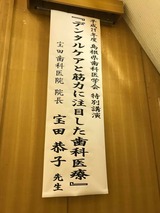 平成21年度 島根県歯科医学会 特別講演
『デンタルケアと筋力に注目した歯科医療』
宝田歯科医院 院長
宝田 恭子 先生